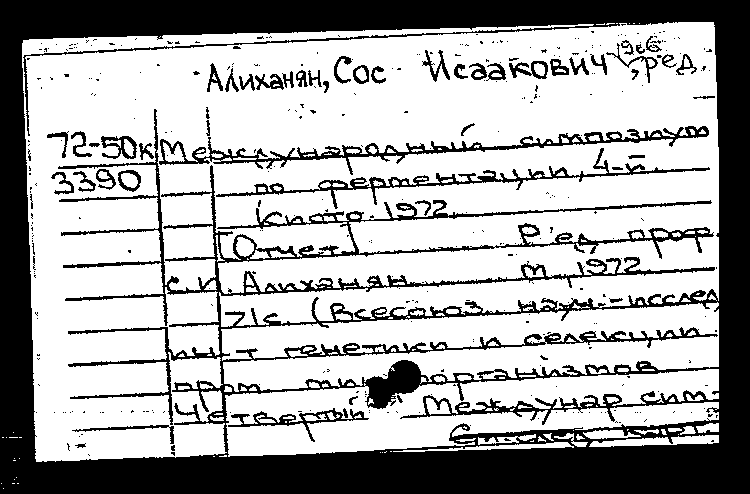 Алиханян, Сос Исаакович, ред.
72-50к Международный симпозиум
3390 по ферментации, 4-й.
Киото. 1972.
[Отчет]. Ред. проф.
С.И. Алиханян М., 1972.
71с. (Всесоюз. науч.-исслед.
ин-т генетики и селекции
пром. микроорганизмов
Четвертый Междунар. сим-
См. след. карт.